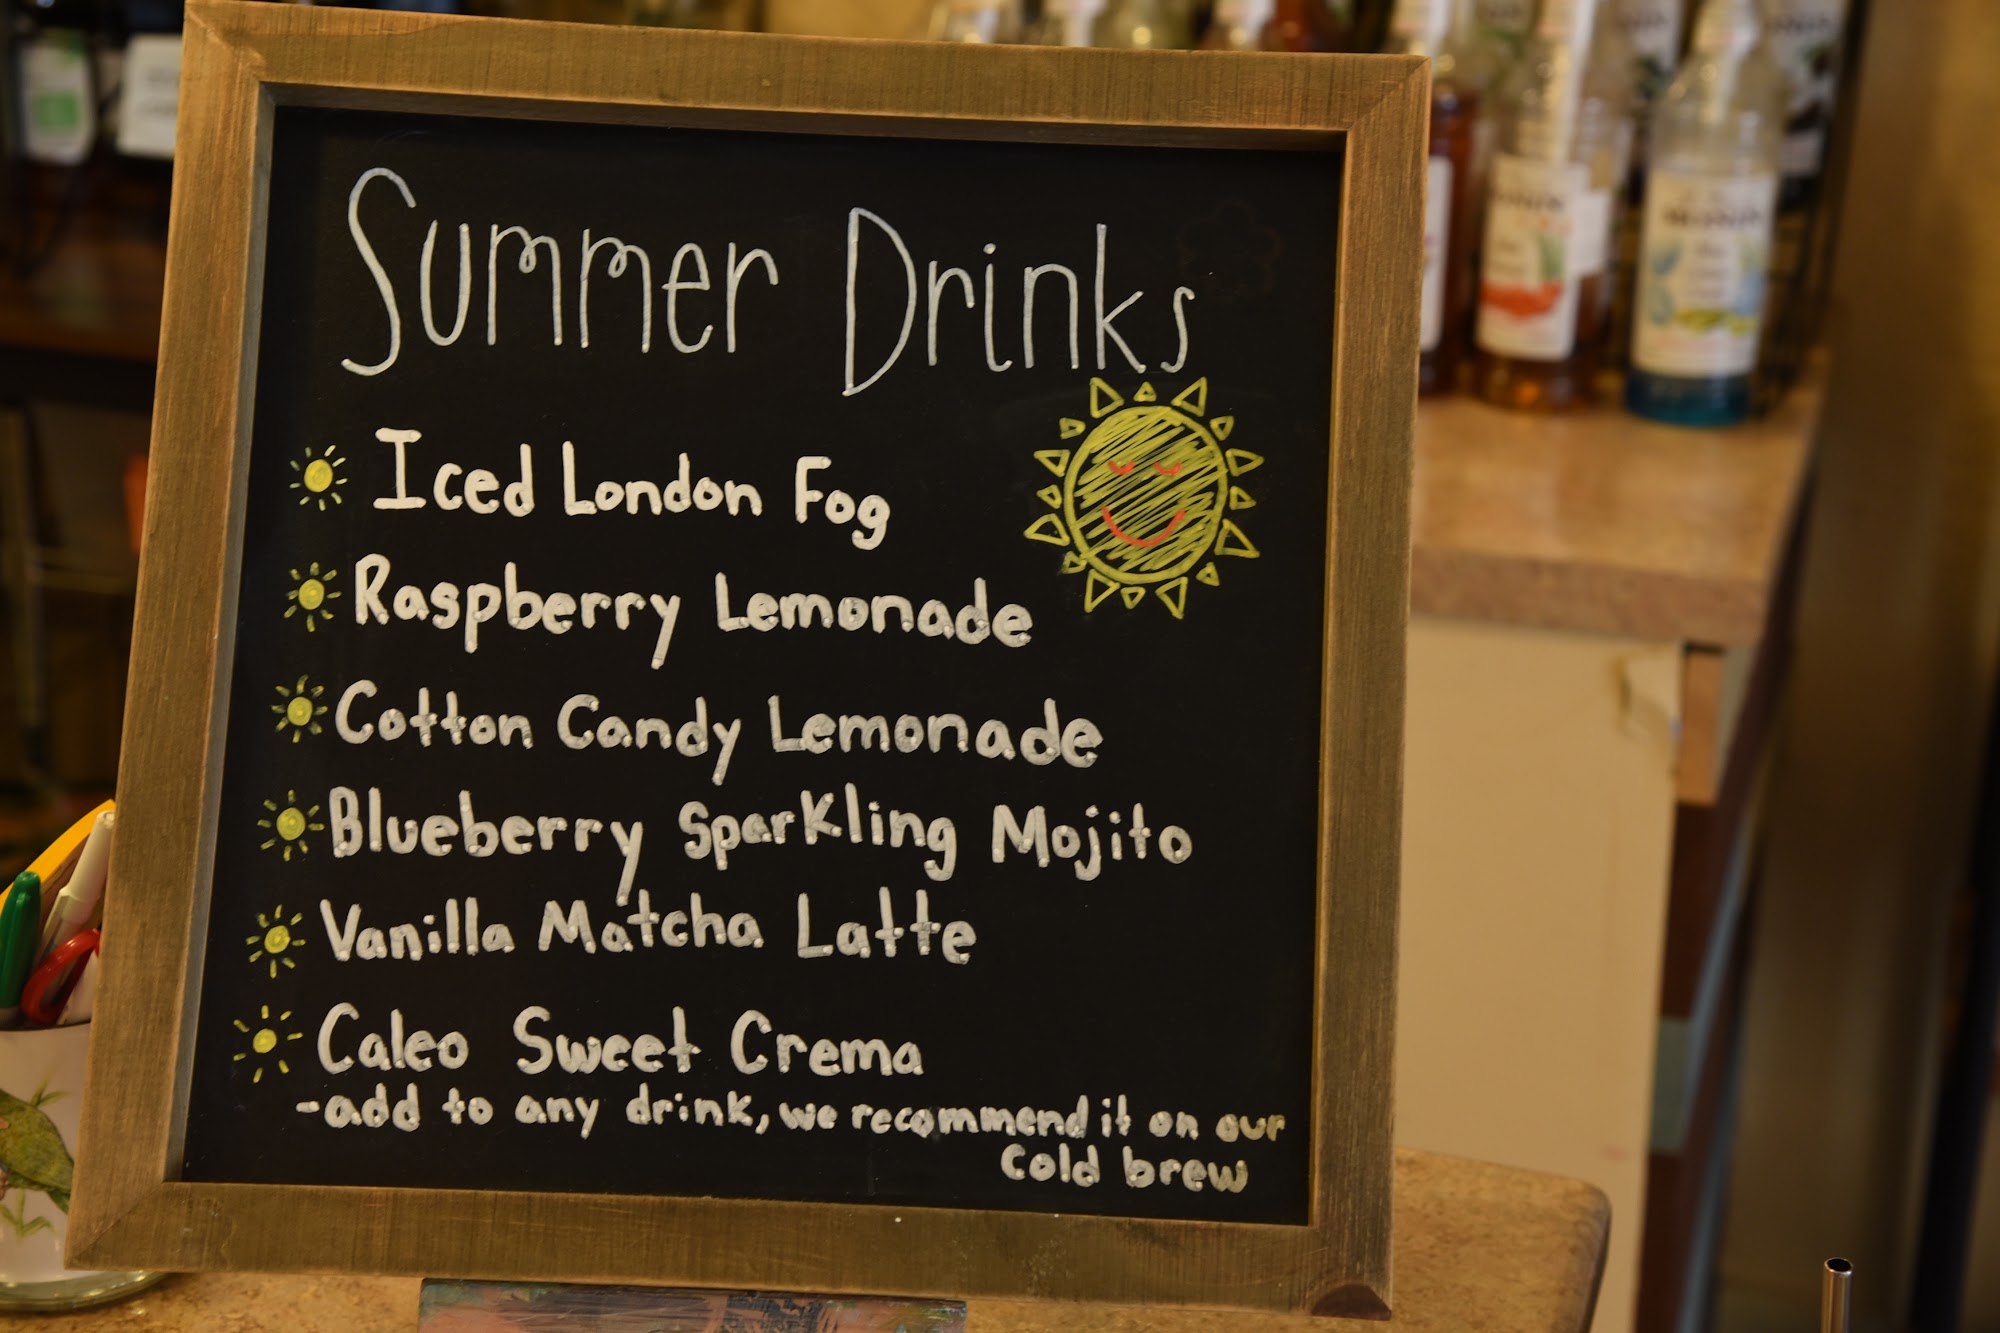 Summer Drinks
Iced London Fog
Raspberry Lemonade
Cotton Candy Lemonade
Blueberry Sparkling Mojito
Vanilla Matcha Latte
Caleo Sweet Crema
-add to any drink, we recommend it on our
cold brew
MONIN